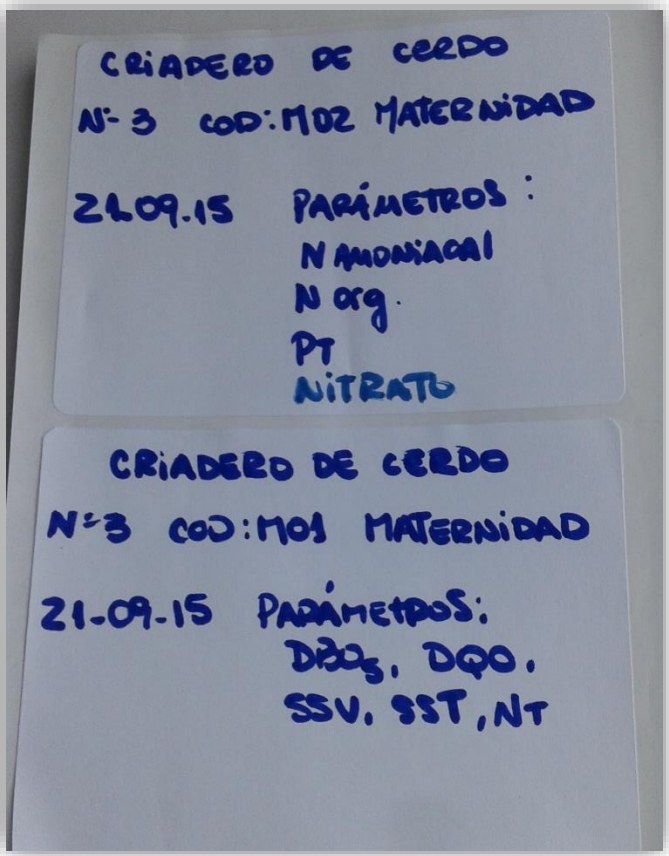 CRiADERO DE CERDO
Nº 3 COD: M02 MATERNiDAD
21.09.15 PARÁMETROS:
N AMONiACAl
N org.
PT
NiTRATO
CRiADERO DE CERDO
Nº 3 COD: M01 MATERNiDAD
21-09-15 PARÁMETROS:
DBO5, DQO,
SSV, SST, NT